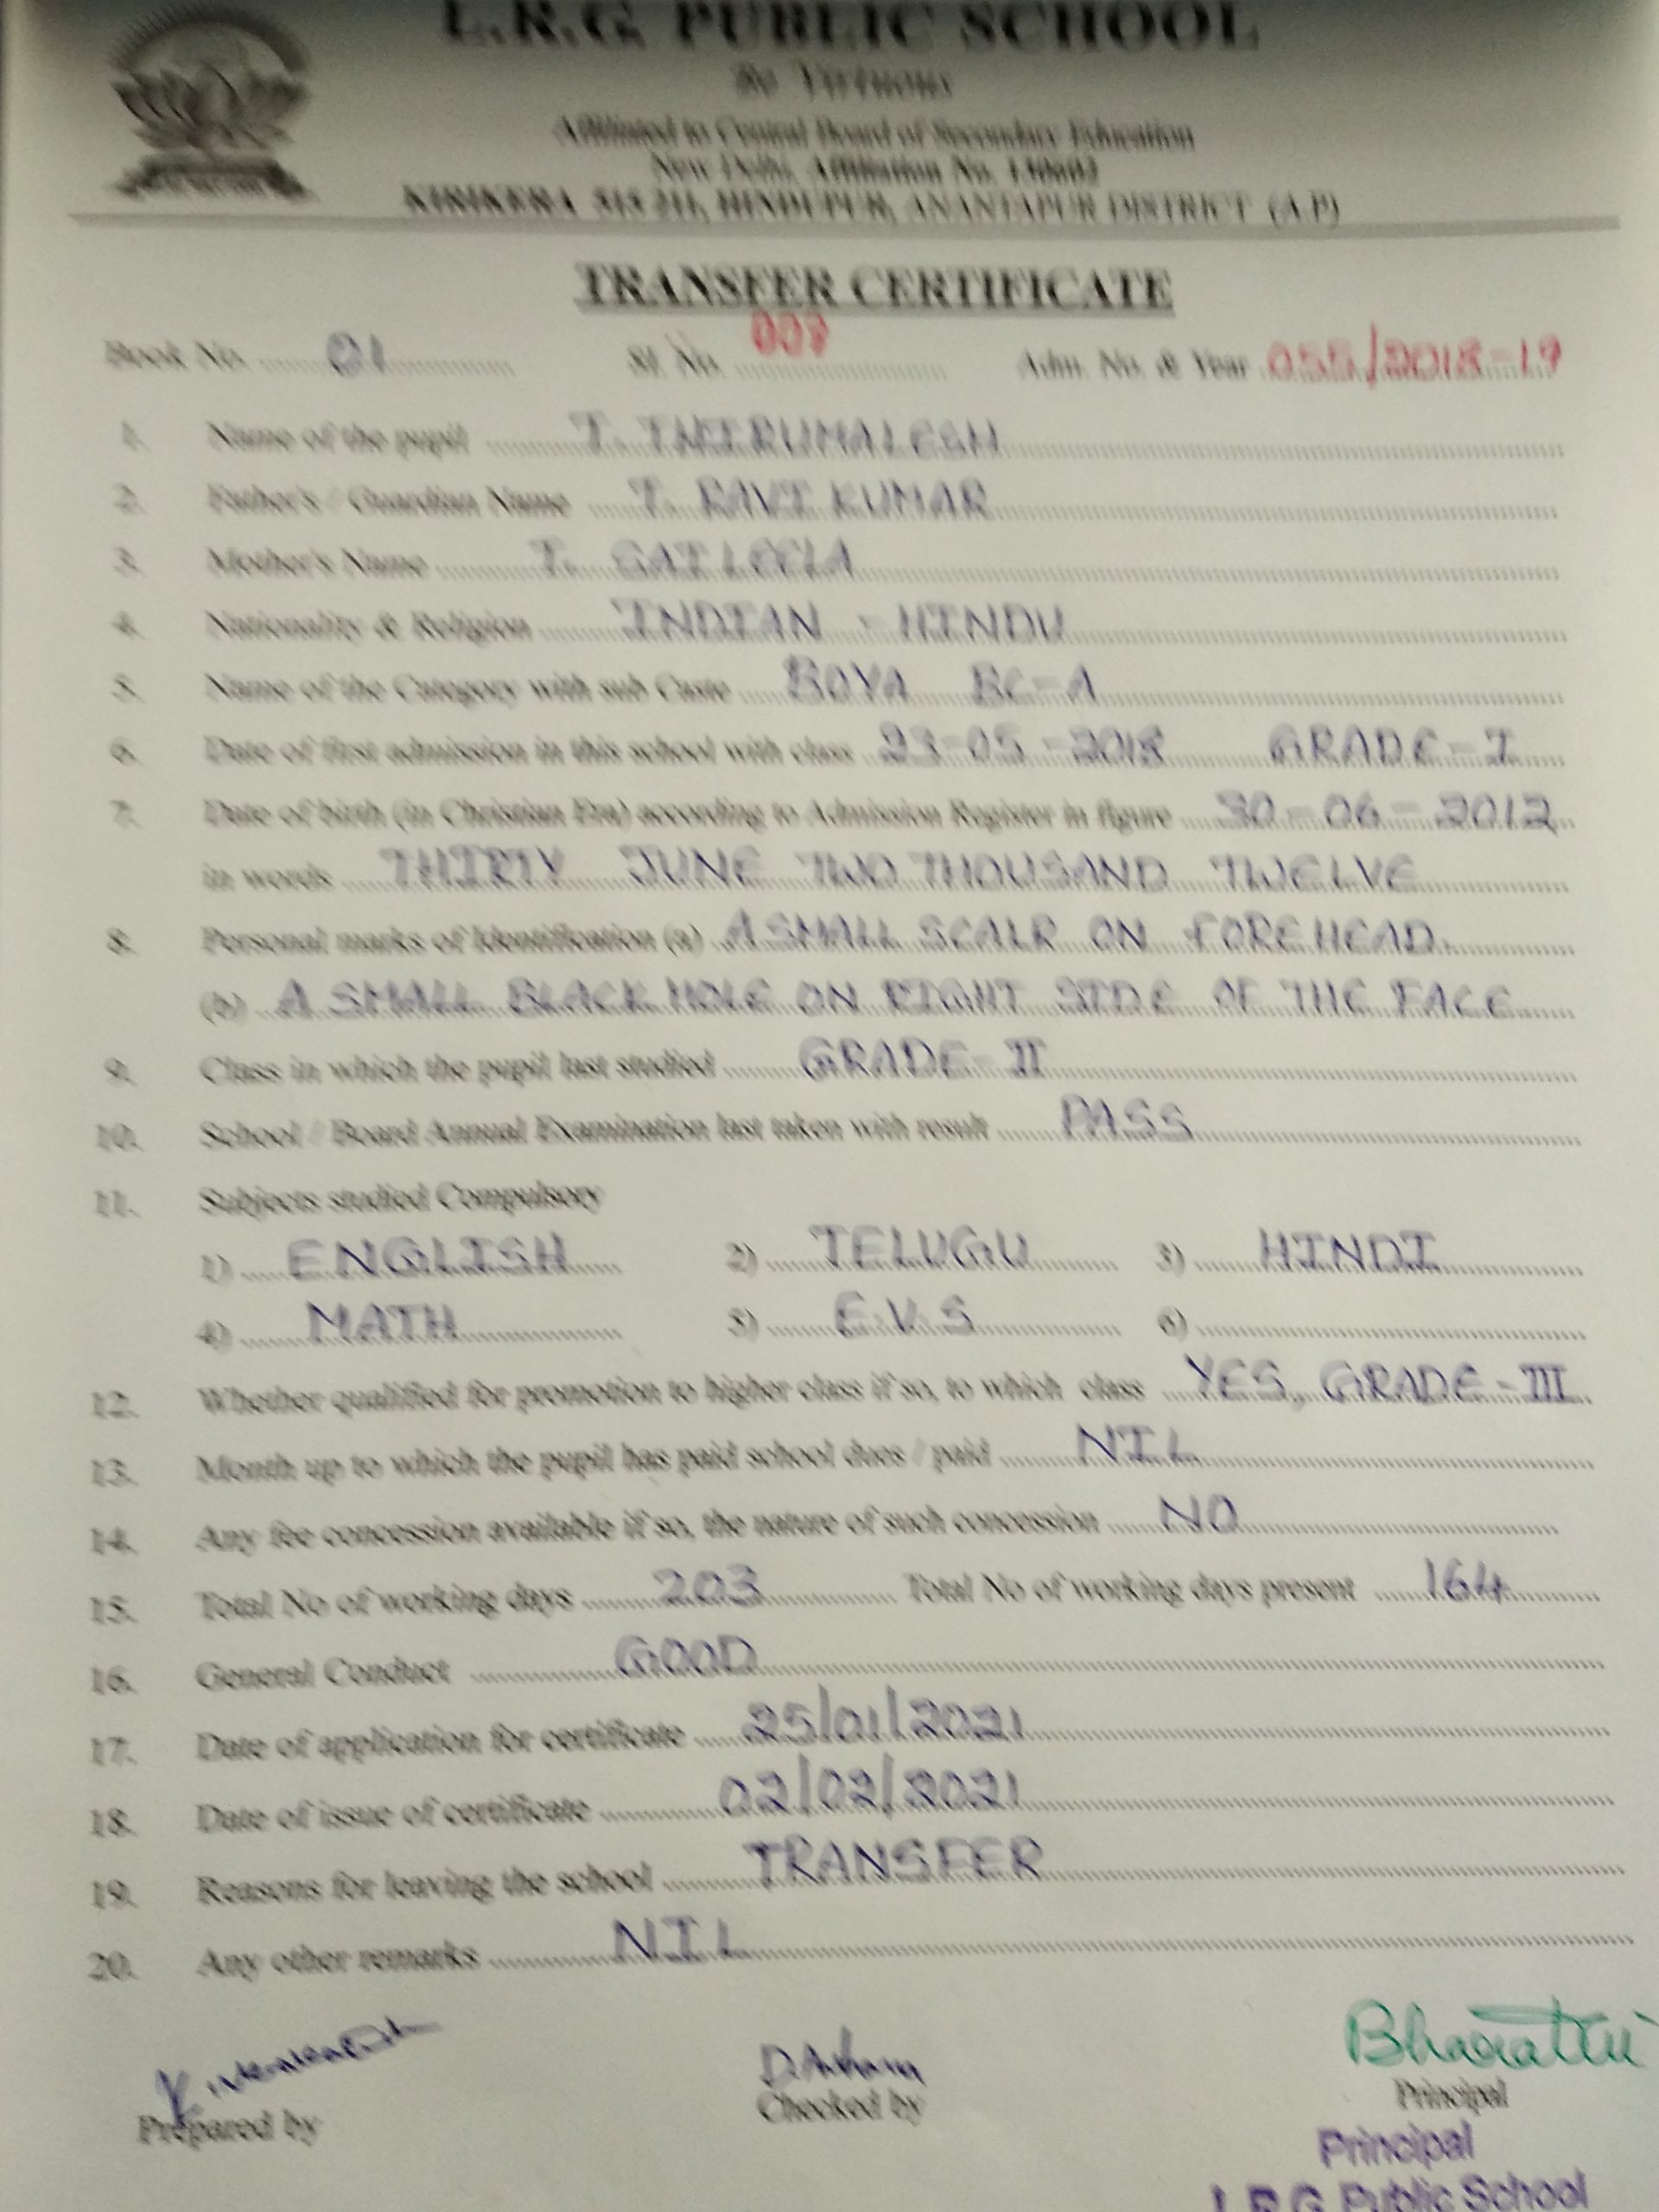 L.R.G. PUBLIC SCHOOL
Be Virtuous
Affiliated to Central Board of Secondary Education
New Delhi, Affiliation No.
KIRIKERA 515 211, HINDUPUR, ANANTAPUR DISTRICT (A.P)
TRANSFER CERTIFICATE
Book No. 01 Sl. No. Adm. No. & Year 055/2018-19
1. Name of the pupil T. THIRUMALESH
2. Father's / Guardian Name T. RAVI KUMAR
3. Mother's Name T. SAI LEELA
4. Nationality & Religion INDIAN - HINDU
5. Name of the Category with sub Caste BOYA BC-A
6. Date of first admission in this school with class 23-05-2018 GRADE-I
7. Date of birth (in Christian Era) according to Admission Register in figure 30-06-2012
in words THIRTY JUNE TWO THOUSAND TWELVE
8. Personal marks of Identification (a) A SMALL SCALR ON FOREHEAD.
(b) A SMALL BLACK MOLE ON RIGHT SIDE OF THE FACE
9. Class in which the pupil last studied GRADE-II
10. School / Board Annual Examination last taken with result PASS
11. Subjects studied Compulsory
1) ENGLISH 2) TELUGU 3) HINDI
4) MATH 5) E.V.S 6)
12. Whether qualified for promotion to higher class if so, to which class YES, GRADE-III
13. Month up to which the pupil has paid school dues / paid NIL
14. Any fee concession available if so, the nature of such concession NO
15. Total No of working days 203 Total No of working days present 164
16. General Conduct GOOD
17. Date of application for certificate 25/01/2021
18. Date of issue of certificate 02/02/2021
19. Reasons for leaving the school TRANSFER
20. Any other remarks NIL
Bharathi
Prepared by Checked by Principal
Principal
L.R.G. Public School